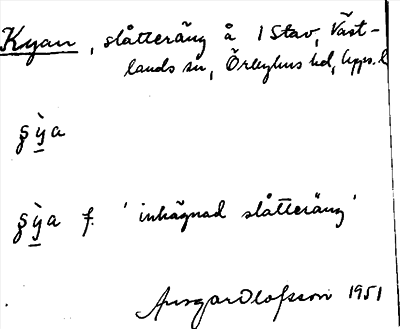 Kyan, slåtteräng å 1 Stav, Väst-
lands sn, Örbyhus hd, Upps. l
ş̀ỳa
ş̀ỳa f. 'inhägnad slåtteräng'
Ansgar Olofsson 1951